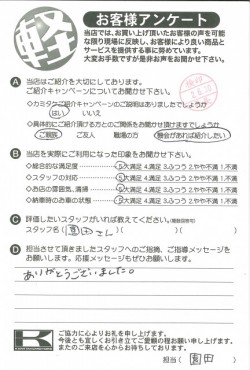 軽
お客様アンケート
当店では、お買い上げ頂いたお客様の声を可能
な限り現場に反映し、お客様により良い商品と
サービスを提供する事に努めています。
大変お手数ですが是非お声をお聞かせ下さい。
A 当店はご紹介を大切にしております。
ご紹介キャンペーンについてお聞かせ下さい?
◇カミタケご紹介キャンペーンのご説明はありましたでしょうか
はい いいえ
◇具体的にご紹介頂ける方とのご関係をお聞かせ頂けますでしょうか
ご親族 ご友人 職場の方 機会があれば紹介したい
B 当店を実際にご利用になった印象をお聞かせ下さい。
◇総合的な満足度 5大満足 4.満足 3.ふつう 2.やや不満 1.不満
◇スタッフの対応 5大満足 4.満足 3.ふつう 2.やや不満 1.不満
◇お店の雰囲気、清掃 5大満足 4.満足 3.ふつう 2.やや不満 1.不満
◇納車時のお車の状態 5大満足 4.満足 3.ふつう 2.やや不満 1.不満
C 評価したいスタッフがいれば教えてください。(複数回答可)
スタッフ名( 園田さん )
D 担当させて頂きましたスタッフへのご指摘、ご指導メッセージを
お願いします。応援メッセージもぜひお願いします。
ありがとうございました。
K
ご協力に心よりお礼を申し上げます。
今後とも宜しくお引き立てご愛顧の程お願い申し上げます。
またのご来店を心からお待ちしております。
担当( 園田 )